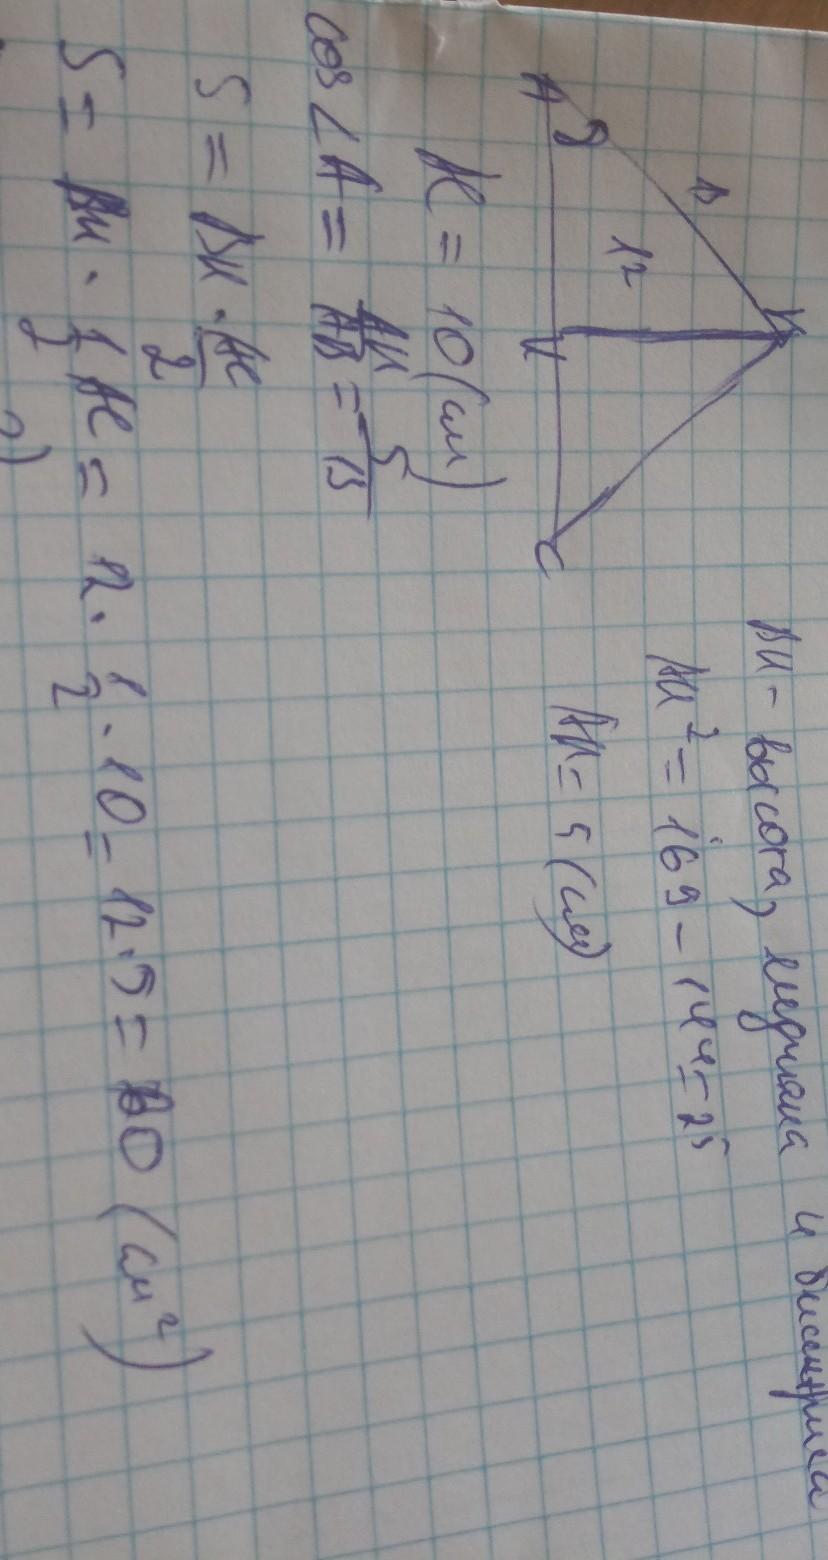 B
13
12
A
H
C
BH - высота, медиана и биссектриса
AH² = 169 - 144 = 25
AH = 5 (см)
AC = 10 (см)
cos ∠A = AH/AB = 5/13
S = BH · AC/2
S = BH · 1/2 AC = 12 · 1/2 · 10 = 12 · 5 = 60 (см²)